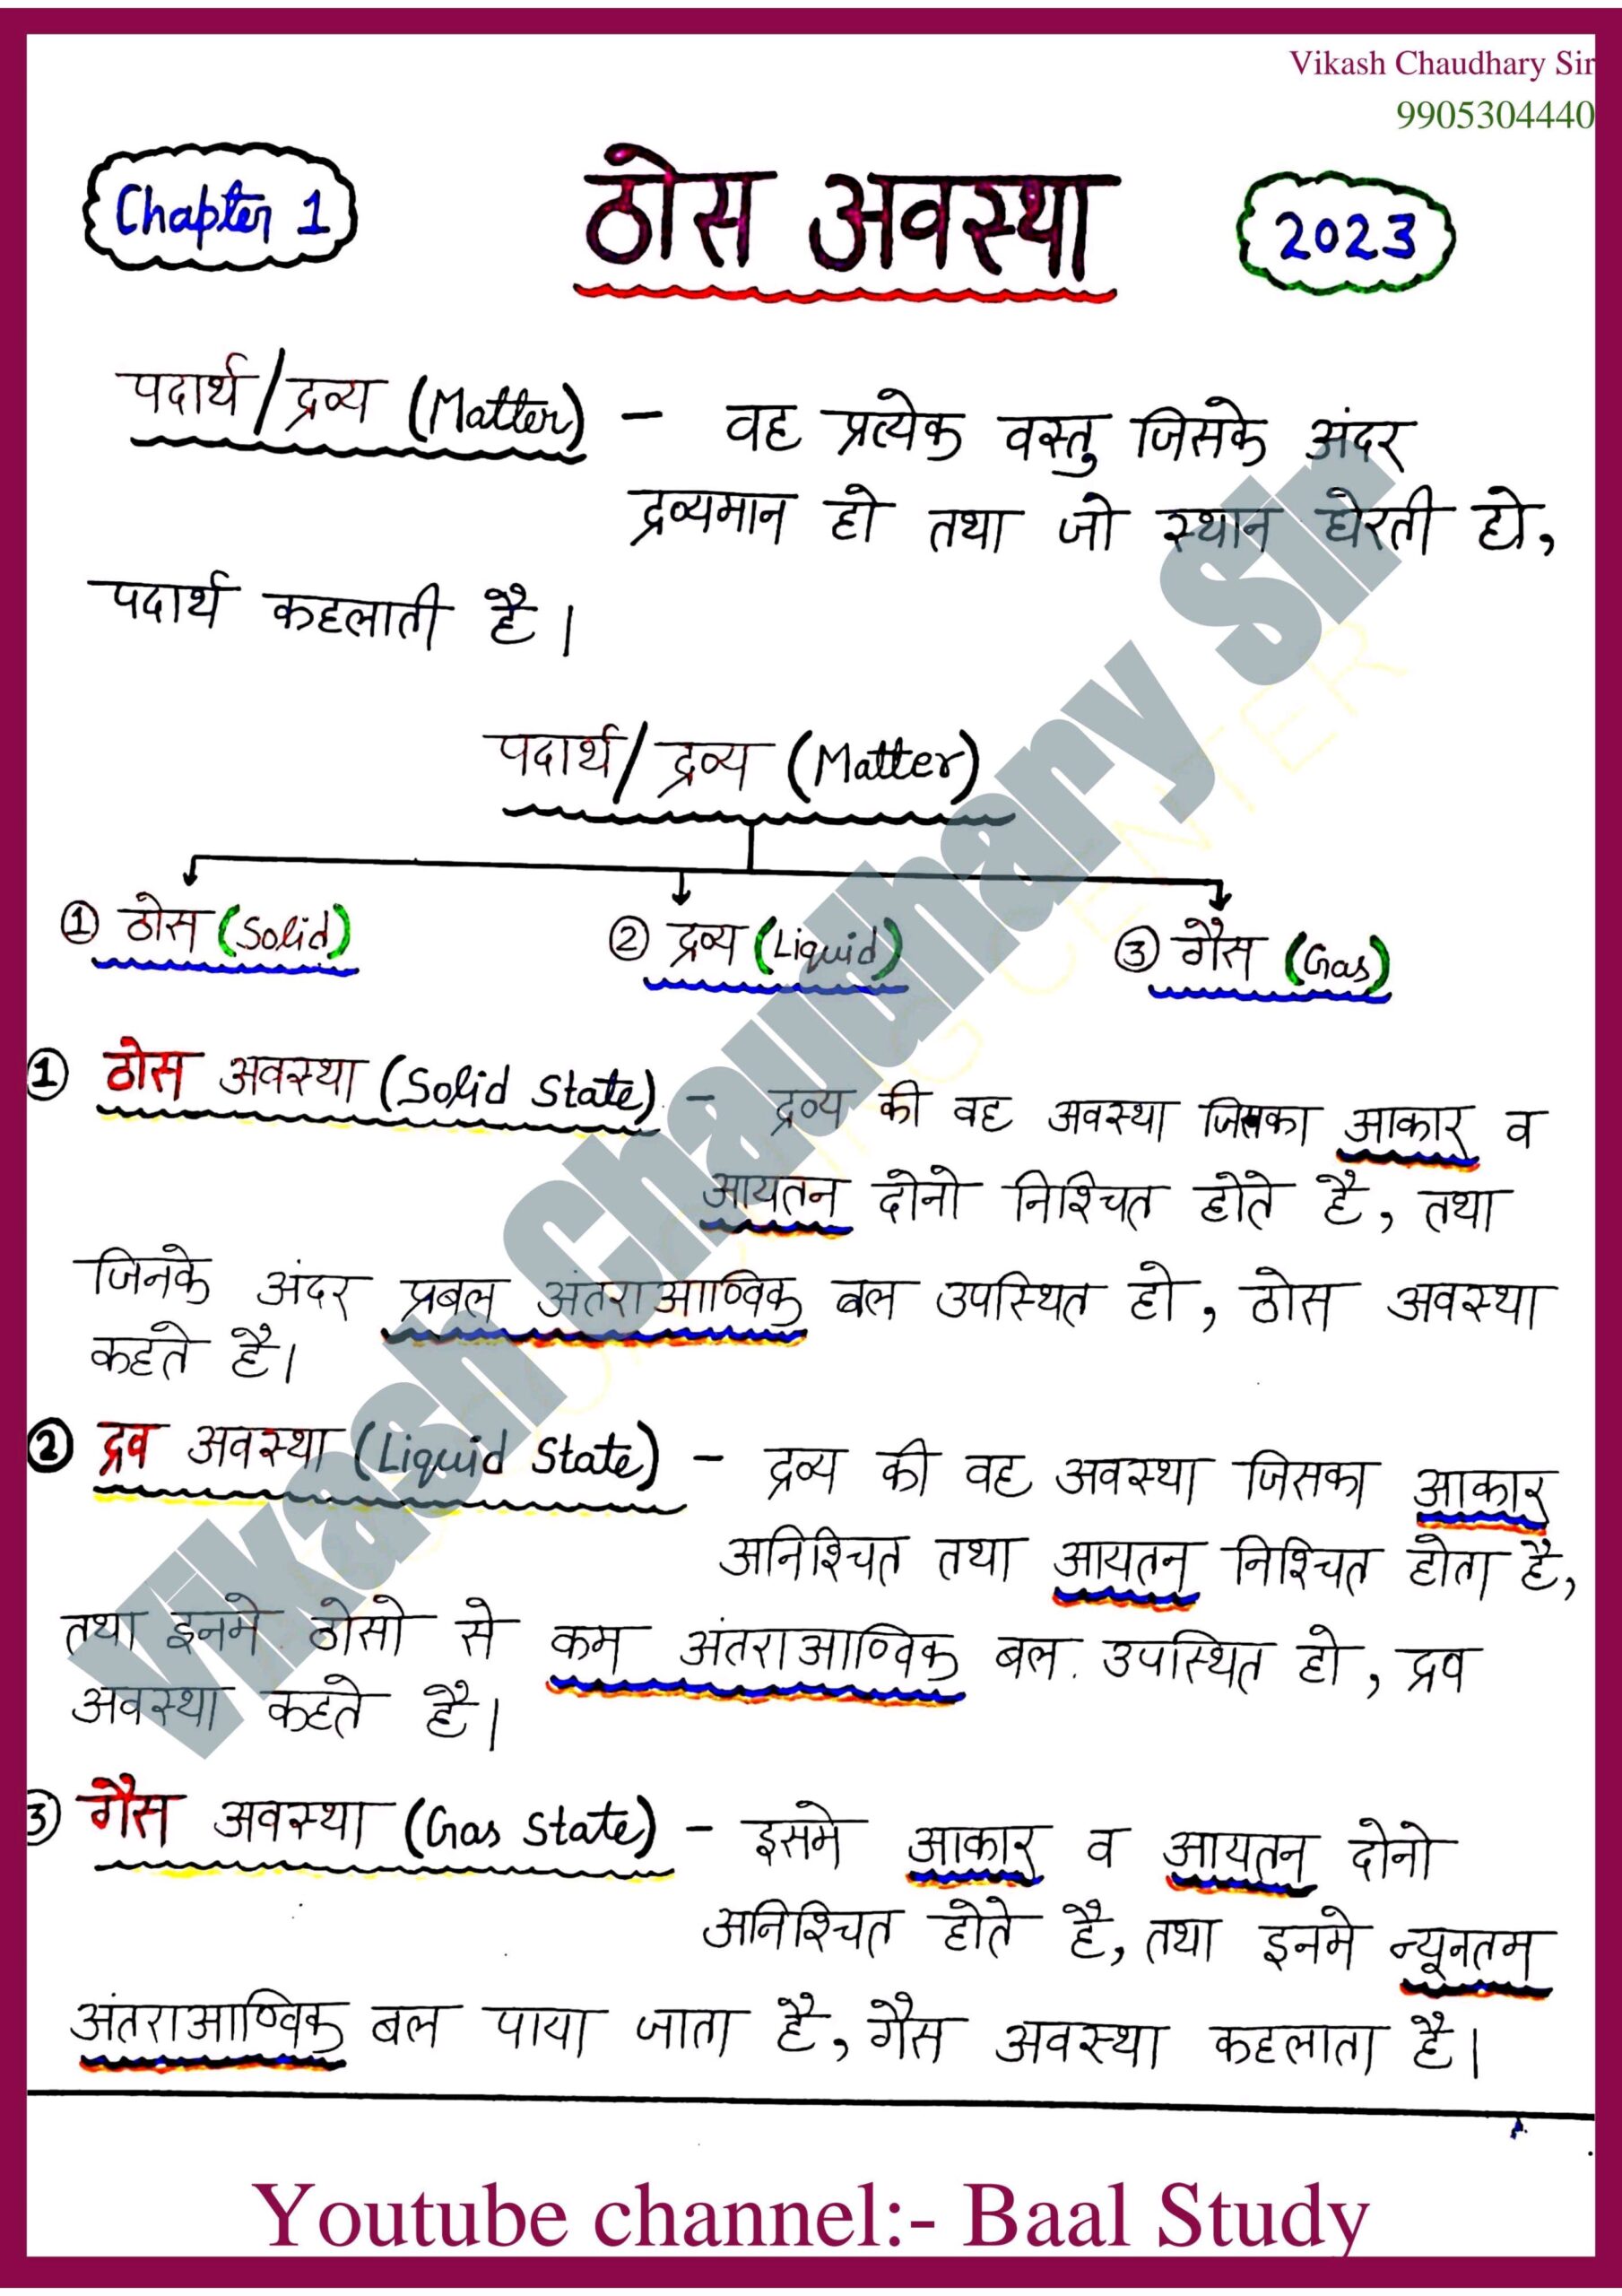 Vikash Chaudhary Sir
9905304440
Chapter 1
ठोस अवस्था
2023
पदार्थ/द्रव्य (Matter) - वह प्रत्येक वस्तु जिसके अंदर
द्रव्यमान हो तथा जो स्थान घेरती हो,
पदार्थ कहलाती है।
पदार्थ/द्रव्य (Matter)
① ठोस (Solid)
② द्रव्य (Liquid)
③ गैस (Gas)
① ठोस अवस्था (Solid State) - द्रव्य की वह अवस्था जिसका आकार व
आयतन दोनो निश्चित होते है, तथा
जिनके अंदर प्रबल अंतराआण्विक बल उपस्थित हो, ठोस अवस्था
कहते है।
② द्रव अवस्था (Liquid State) - द्रव्य की वह अवस्था जिसका आकार
अनिश्चित तथा आयतन निश्चित होता है,
तथा इनमे ठोसो से कम अंतराआण्विक बल उपस्थित हो, द्रव
अवस्था कहते है।
③ गैस अवस्था (Gas State) - इसमे आकार व आयतन दोनो
अनिश्चित होते है, तथा इनमे न्यूनतम
अंतराआण्विक बल पाया जाता है, गैस अवस्था कहलाता है।
Vikash Chaudhary Sir
Youtube channel:- Baal Study